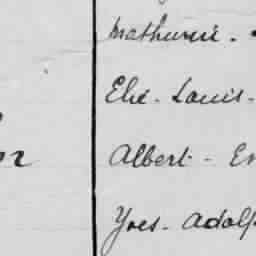 Mathurin -
Elie - Louis -
Albert -
Yves - Adolp